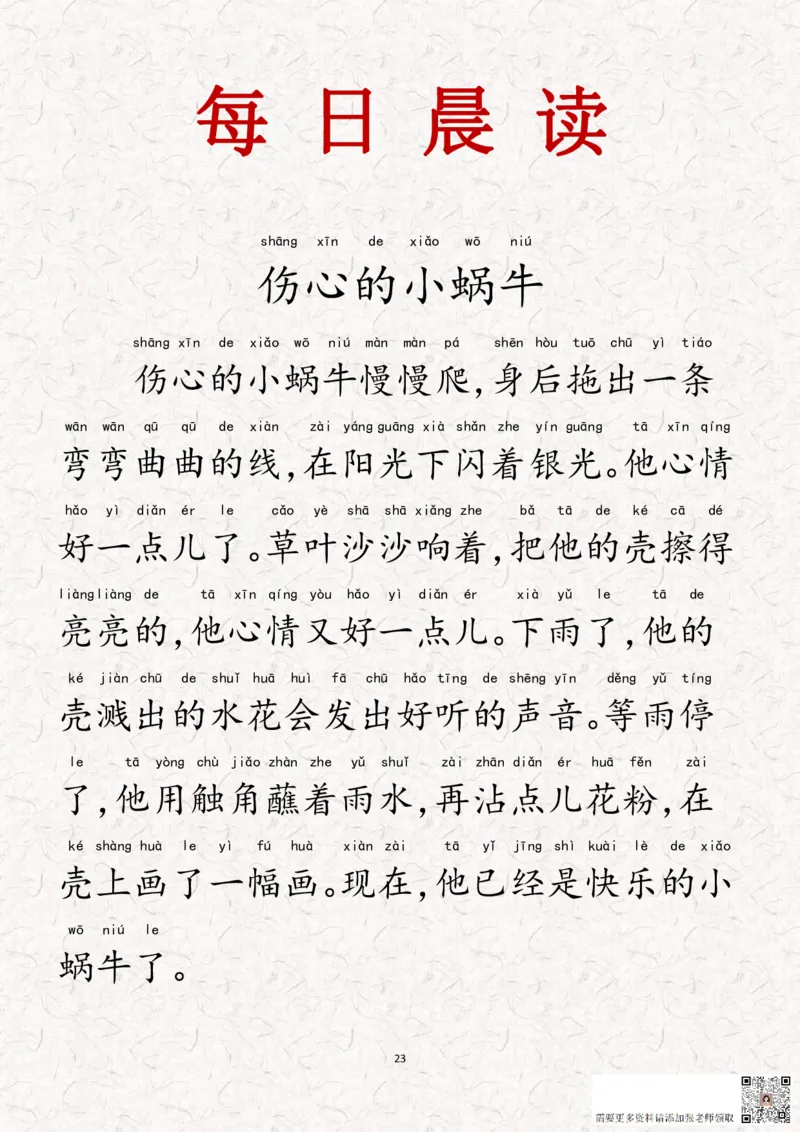 每日晨读
shāng xīn de xiǎo wō niú
伤心的小蜗牛
shāng xīn de xiǎo wō niú màn màn pá shēn hòu tuō chū yì tiáo
伤心的小蜗牛慢慢爬,身后拖出一条
wān wān qū qū de xiàn zài yáng guāng xià shǎn zhe yín guāng tā xīn qíng
弯弯曲曲的线,在阳光下闪着银光。他心情
hǎo yì diǎn ér le cǎo yè shā shā xiǎng zhe bǎ tā de ké cā dé
好一点儿了。草叶沙沙响着,把他的壳擦得
liàng liàng de tā xīn qíng yòu hǎo yì diǎn ér xià yǔ le tā de
亮亮的,他心情又好一点儿。下雨了,他的
ké jiàn chū de shuǐ huā huì fā chū hǎo tīng de shēng yīn děng yǔ tíng
壳溅出的水花会发出好听的声音。等雨停
le tā yòng chù jiǎo zhàn zhe yǔ shuǐ zài zhān diǎn ér huā fěn zài
了,他用触角蘸着雨水,再沾点儿花粉,在
ké shàng huà le yì fú huà xiàn zài tā yǐ jīng shì kuài lè de xiǎo
壳上画了一幅画。现在,他已经是快乐的小
wō niú le
蜗牛了。
23
需要更多资料请添加张老师领取